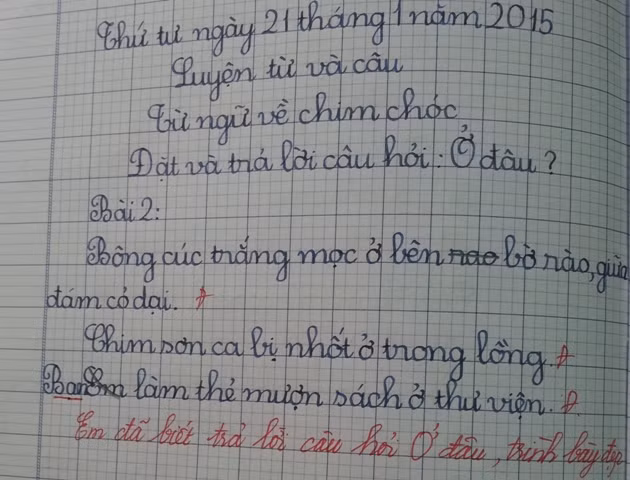 Thứ tư ngày 21 tháng 1 năm 2015
Luyện từ và câu
Từ ngữ về chim chóc
Đặt và trả lời câu hỏi: Ở đâu?
Bài 2:
Bông cúc trắng mọc ở bên nao bờ nào, giữa
đám cỏ dại.
Chim sơn ca bị nhốt ở trong lồng.
Ban Em làm thẻ mượn sách ở thư viện.
Em đã biết trả lời câu hỏi Ở đâu, trình bày đẹp